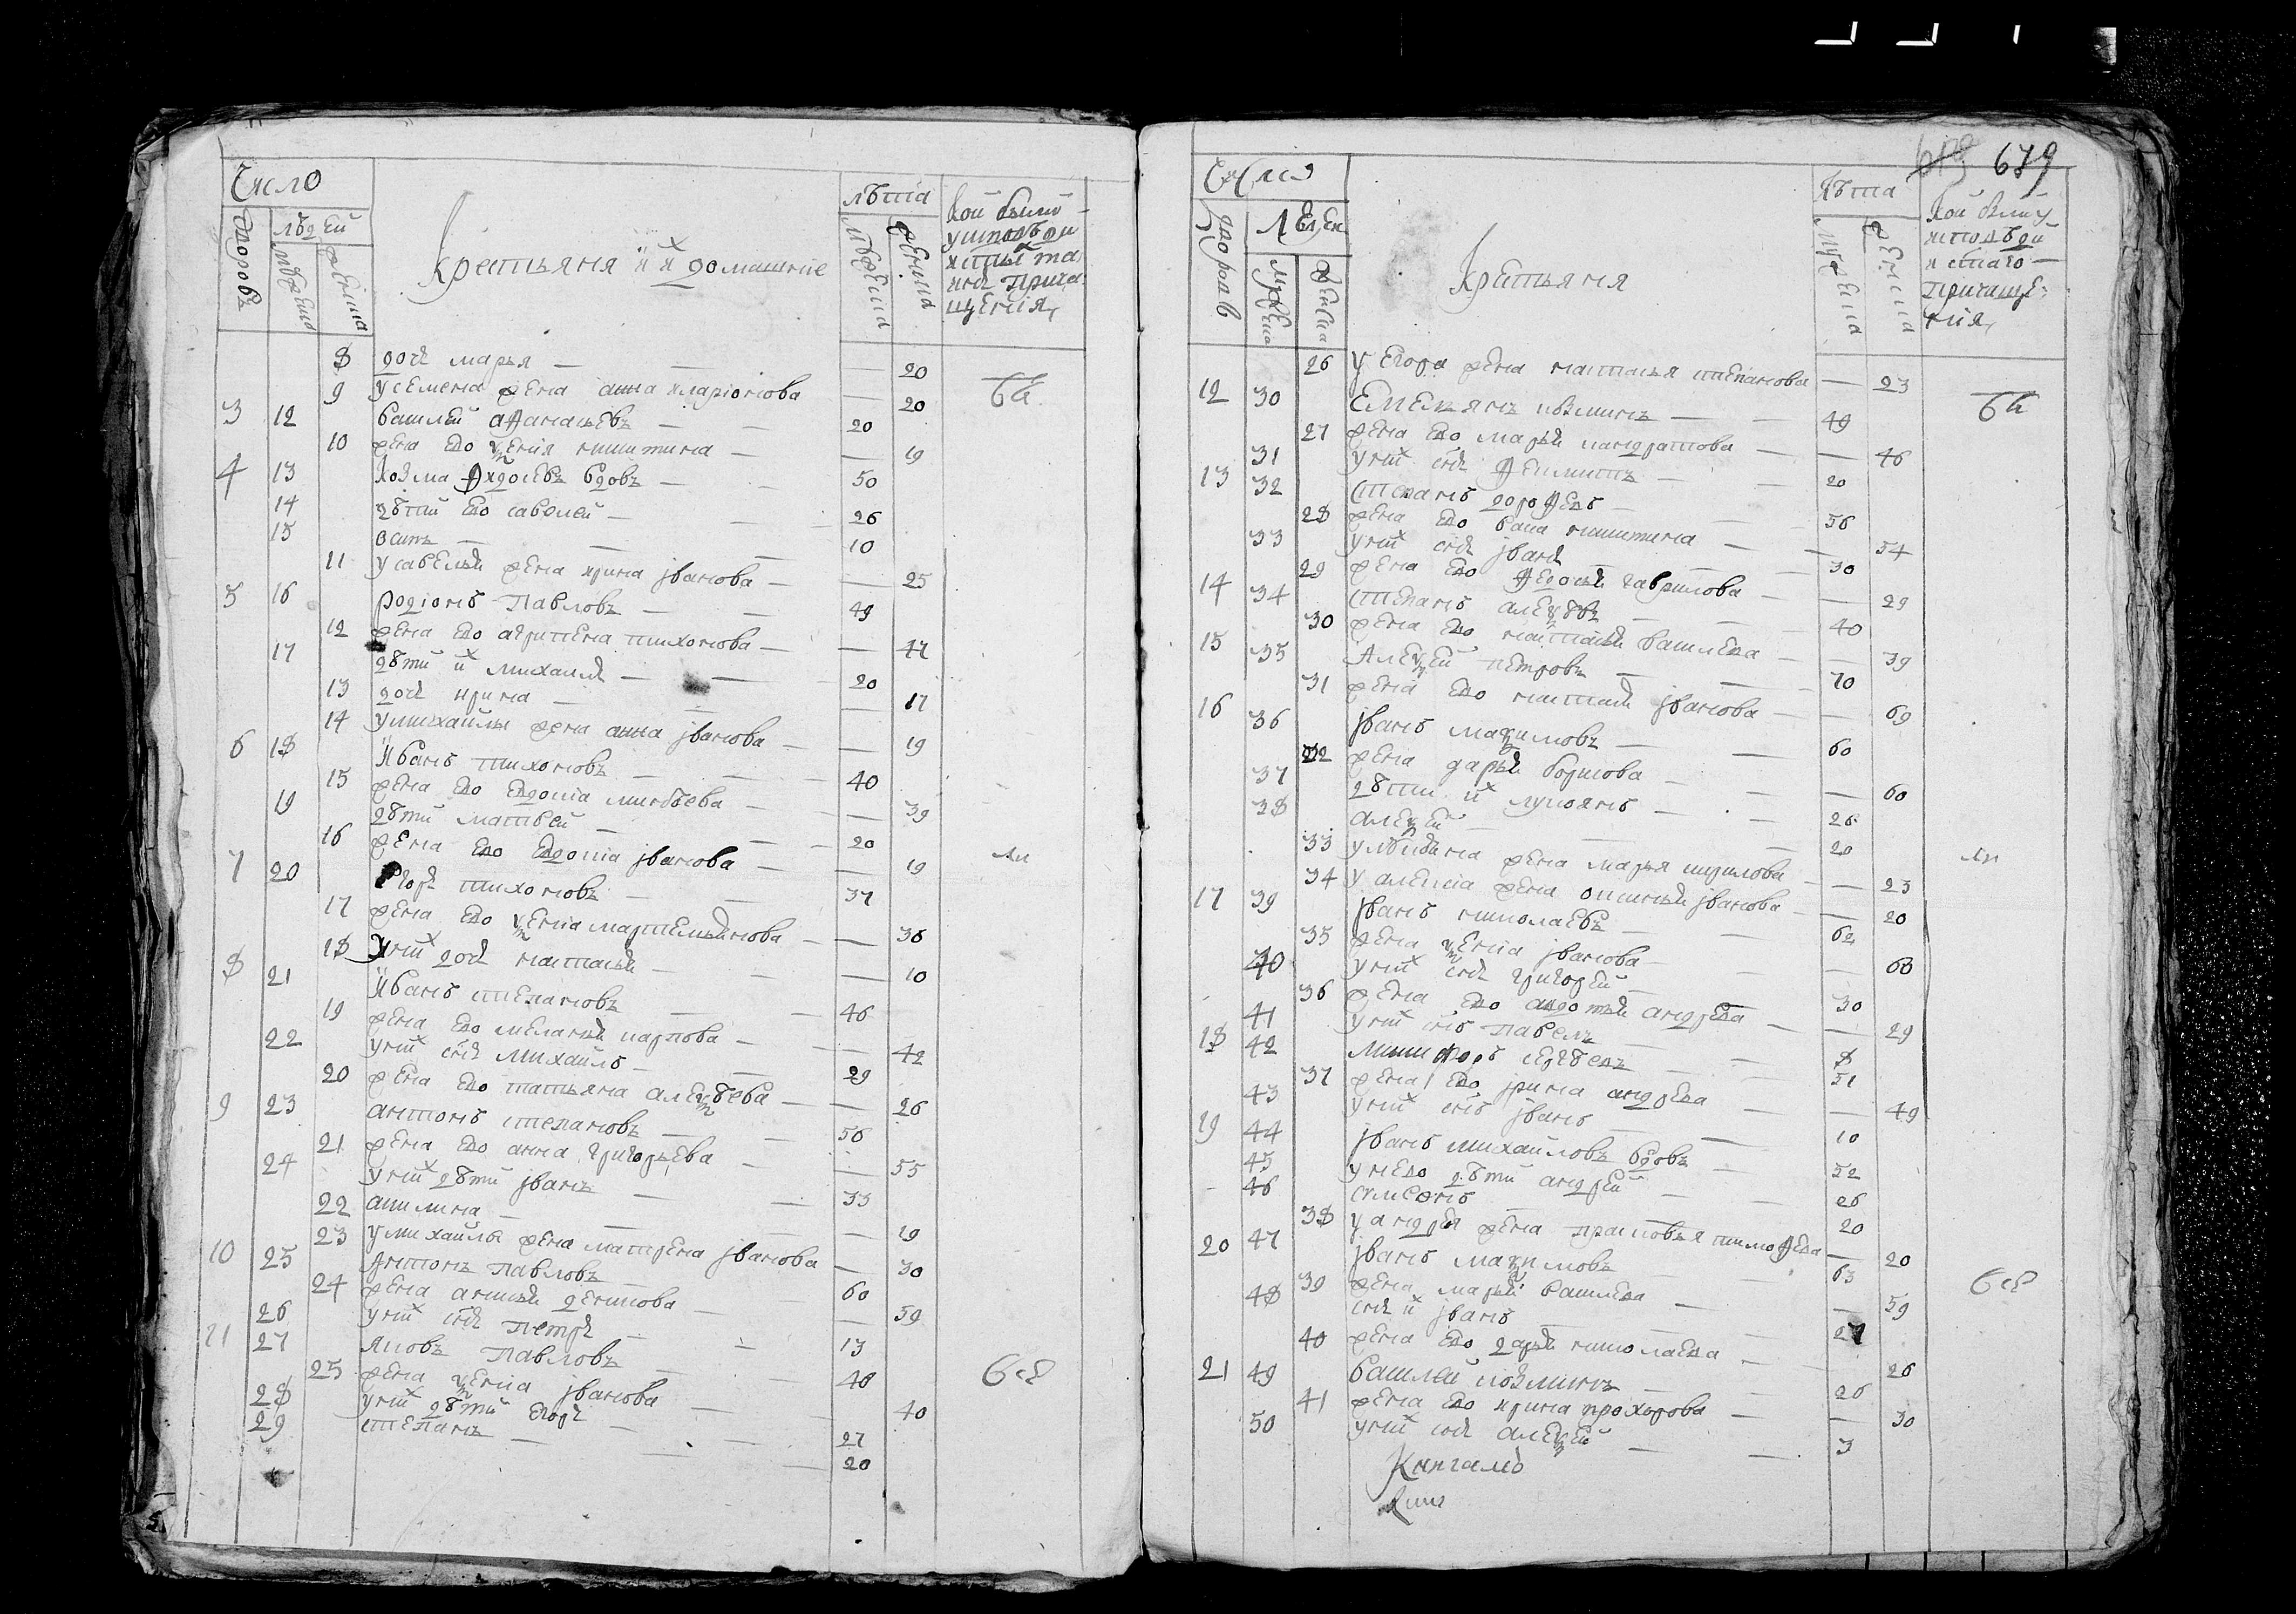 Число
людей
дворовъ
мужеска
женска
Крестьяня и их домашние
лѣта
мужеска
женска
Кои были
у исповѣди
и святыхъ та
инъ прича
щения
8 дочь марья — 20
9 у семена жена анна иларионова — 20
бы
3 12 василей афанасьевъ — 20
10 жена ево ксения никитина — 19
4 13 козма вдовъ — 50
14 дѣти ево савелей — 26
15 осипъ — 10
11 у савелья жена ирина иванова — 25
5 16 родионъ павловъ — 49
12 жена ево агрипена тихонова — 47
17 дѣти их михаилъ — 20
13 дочь ирина — 17
14 у михайлы жена анна иванова — 19
6 18 Иванъ тихоновъ — 40
15 жена ево евдокия — 39
19 дѣти матвей — 20
16 жена ево евдокия иванова — 19
ли
7 20 егоръ тихоновъ — 37
17 жена ево ксения — 36
18 у них дочь настасья — 10
8 21 Иванъ степановъ — 46
19 жена ево меланья карпова — 42
22 у них сынъ михаилъ — 29
20 жена ево татьяна алексѣева — 26
9 23 антонъ степановъ — 56
21 жена ево анна григорьева — 55
24 у них дѣти иванъ — 33
22 акилина — 19
23 у михайлы жена матрена иванова — 30
10 25 Антонъ павловъ — 60
24 жена анисья денисова — 59
26 у них сынъ петръ — 13
11 27 яковъ павловъ — 48
25 жена ксения иванова — 40
всѣ
28 у них дѣти егоръ — 27
29 степанъ — 20
679
Числа
людей
дворовъ
мужеска
женска
Крестьяня
Лѣта
мужеска
женска
Кои были у
исповѣди
и святаго
причаще-
ния
26 у егора жена настасья степанова — 23
бы
12 30 Емельянъ козминъ — 49
27 жена ево марья кандратова — 46
31 у них сынъ — 20
13 32 Степанъ дорофеевъ — 56
28 жена ево никитина — 54
33 у них сынъ иванъ — 30
29 жена ево федосья гаврилова — 29
14 34 Степанъ алексѣевъ — 40
30 жена ево настасья василева — 39
15 35 Алексей петровъ — 70
31 жена ево настасья иванова — 69
16 36 Иванъ максимовъ — 60
32 жена дарья борисова — 60
37 дѣти их лукоянъ — 26
38 алексей — 20
33 у лукояна жена марья кирилова — 23
ли
34 у алексия жена аксинья иванова — 20
17 39 Иванъ николаевъ — 62
35 жена ксения иванова — 60
40 у них сынъ григорей — 30
36 жена ево авдотья андрева — 29
41 у них сынъ павелъ — 8
18 42 никифоръ сергѣевъ — 51
37 жена ево ирина андрева — 49
43 у них сынъ иванъ — 10
19 44 Иванъ михайловъ вдовъ — 52
45 у нево дѣти андрей — 26
46 симеонъ — 20
38 у андрея жена прасковья тимофева — 20
20 47 Иванъ максимовъ — 63
39 жена марья василева — 59
всѣ
48 сынъ их иванъ — 27
40 жена ево дарья николаева — 26
21 49 василей козминъ — 26
41 жена ево ирина прохорова — 30
50 у них сынъ алексей — 3